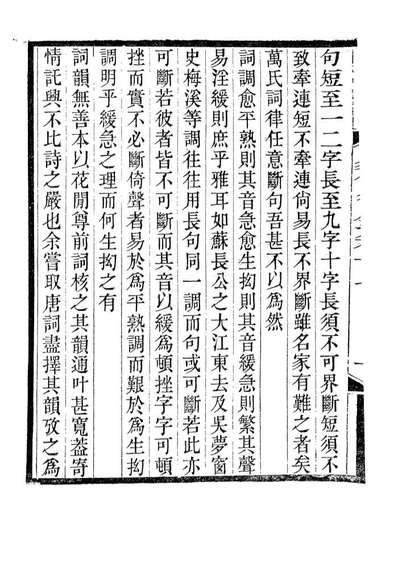 句短至一二字長至九字十字長須不可界斷短須不
致牽連短不牽連尙易長不界斷雖名家有難之者矣
萬氏詞律任意斷句吾甚不以爲然
詞調愈平熟則其音急愈生拗則其音緩急則繁其聲
易淫緩則庶乎雅耳如蘇長公之大江東去及吳夢窗
史梅溪等調往往用長句同一調而句或可斷若此亦
可斷若彼者皆不可斷而其音以緩爲頓挫字字可頓
挫而實不必斷倚聲者易於爲平熟調而艱於爲生拗
調明乎緩急之理而何生拗之有
詞韻無善本以花間尊前詞核之其韻通叶甚寬葢寄
情託興不比詩之嚴也余嘗取唐詞盡擇其韻攷之爲